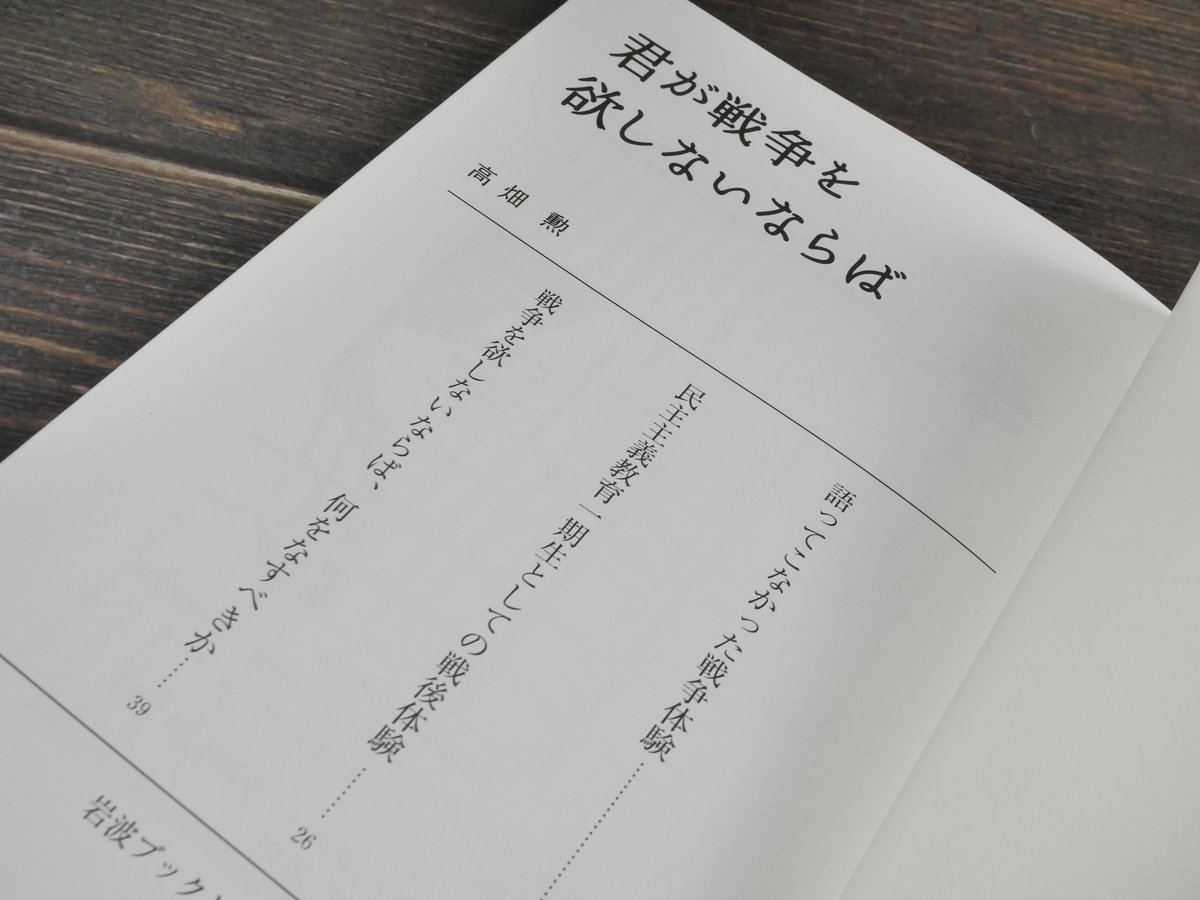 君が戦争を
欲しないならば
高畑 勲
語ってこなかった戦争体験……
民主主義教育一期生としての戦後体験…… 26
戦争を欲しないならば、何をなすべきか…… 39
岩波ブック